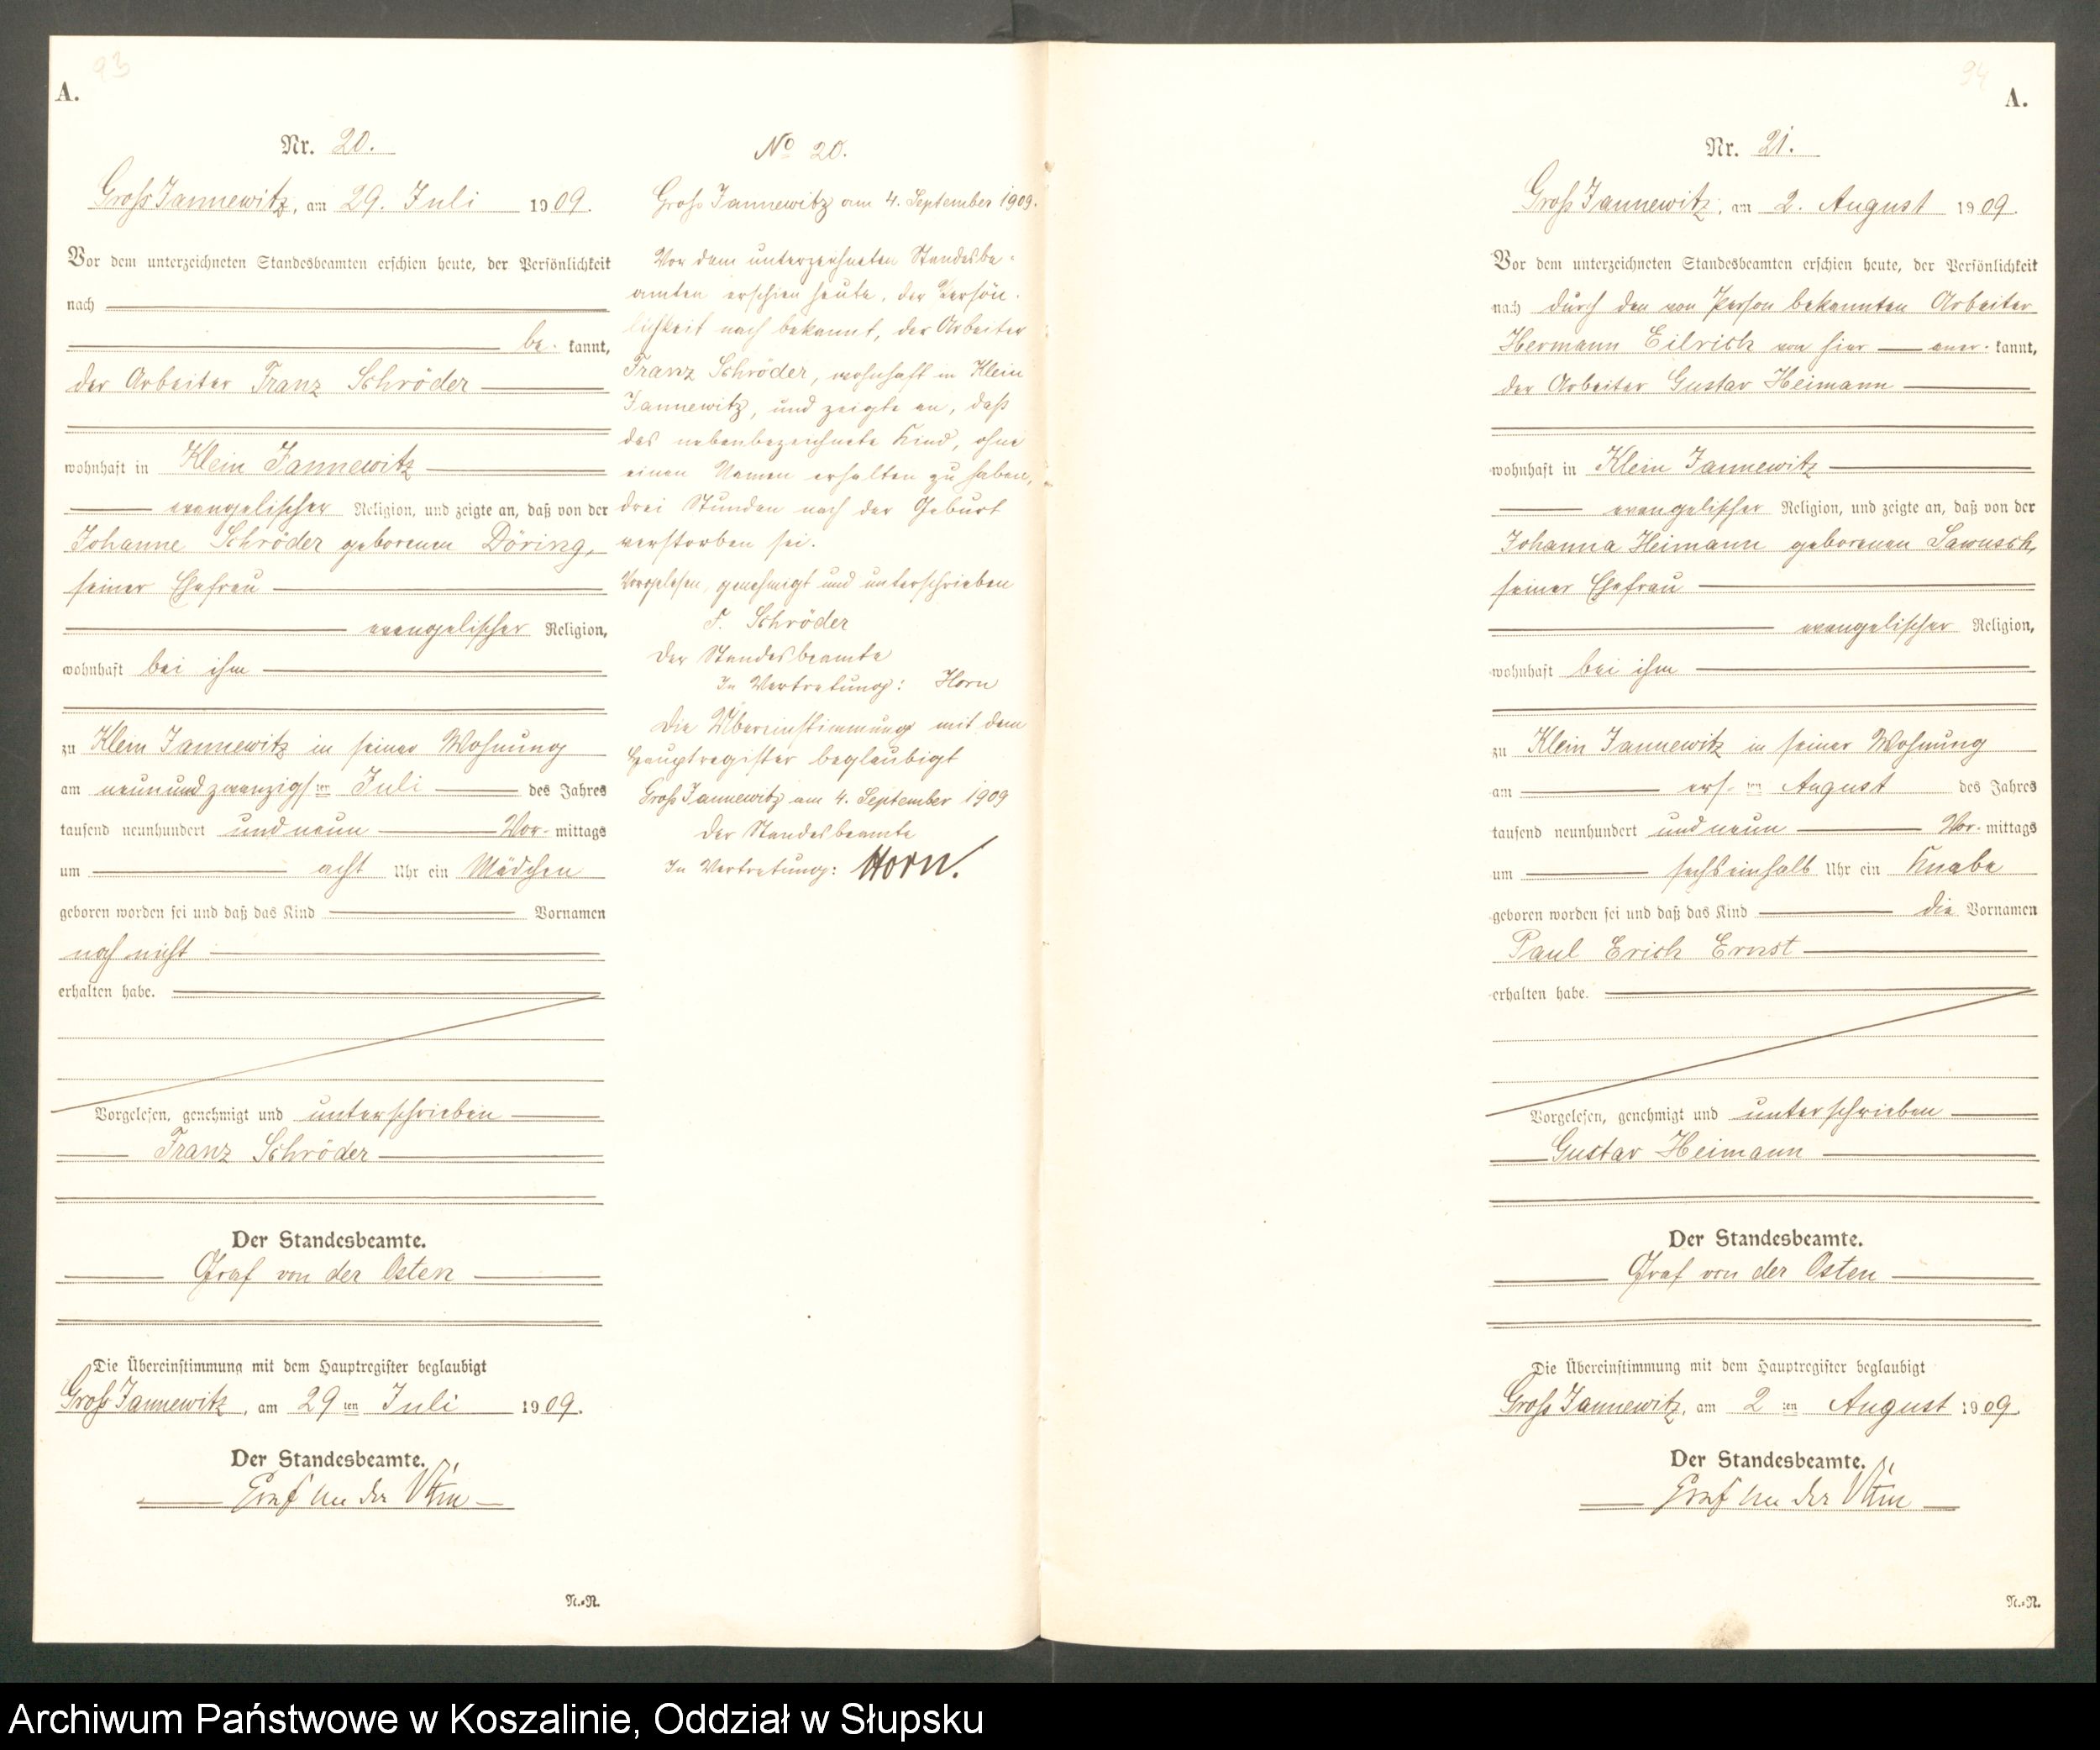 93
A.
Nr. 20.
Groß Jannewitz, am 29. Juli 1909.
Vor dem unterzeichneten Standesbeamten erschien heute, der Persönlichkeit
nach
be- kannt,
der Arbeiter Franz Schröder
wohnhaft in Klein Jannewitz
evangelischer Religion, und zeigte an, daß von der
Johanne Schröder geborenen Döring,
seiner Ehefrau
evangelischer Religion,
wohnhaft bei ihm
zu Klein Jannewitz in seiner Wohnung
am neunundzwanzigsten Juli des Jahres
tausend neunhundert und neun Vor- mittags
um acht Uhr ein Mädchen
geboren worden sei und daß das Kind Vornamen
noch nicht
erhalten habe.
Vorgelesen, genehmigt und unterschrieben
Franz Schröder
Der Standesbeamte.
Graf von der Osten
Die Übereinstimmung mit dem Hauptregister beglaubigt
Groß Jannewitz, am 29ten Juli 1909.
Der Standesbeamte.
Graf von der Osten
N.=N.
No 20.
Groß Jannewitz am 4. September 1909.
Vor dem unterzeichneten Standesbe-
amten erschien heute, der Persön-
lichkeit nach bekannt, der Arbeiter
Franz Schröder, wohnhaft in Klein
Jannewitz, und zeigte an, daß
das nebenbezeichnete Kind, ohne
einen Namen erhalten zu haben,
drei Stunden nach der Geburt
verstorben sei.
Vorgelesen, genehmigt und unterschrieben
F. Schröder
Der Standesbeamte
In Vertretung: Horn
Die Übereinstimmung mit dem
Hauptregister beglaubigt
Groß Jannewitz am 4. September 1909
Der Standesbeamte
In Vertretung: Horn.
94
A.
Nr. 21.
Groß Jannewitz, am 2. August 1909.
Vor dem unterzeichneten Standesbeamten erschien heute, der Persönlichkeit
nach durch den von Person bekannten Arbeiter
Hermann Eilrich von hier aner- kannt,
der Arbeiter Gustav Heimann
wohnhaft in Klein Jannewitz
evangelischer Religion, und zeigte an, daß von der
Johanna Heimann geborenen Sawusch,
seiner Ehefrau
evangelischer Religion,
wohnhaft bei ihm
zu Klein Jannewitz in seiner Wohnung
am ersten August des Jahres
tausend neunhundert und neun Vor- mittags
um sechseinhalb Uhr ein Knabe
geboren worden sei und daß das Kind die Vornamen
Paul Erich Ernst
erhalten habe.
Vorgelesen, genehmigt und unterschrieben
Gustav Heimann
Der Standesbeamte.
Graf von der Osten
Die Übereinstimmung mit dem Hauptregister beglaubigt
Groß Jannewitz, am 2ten August 1909.
Der Standesbeamte.
Graf von der Osten
N.=N.
Archiwum Państwowe w Koszalinie, Oddział w Słupsku